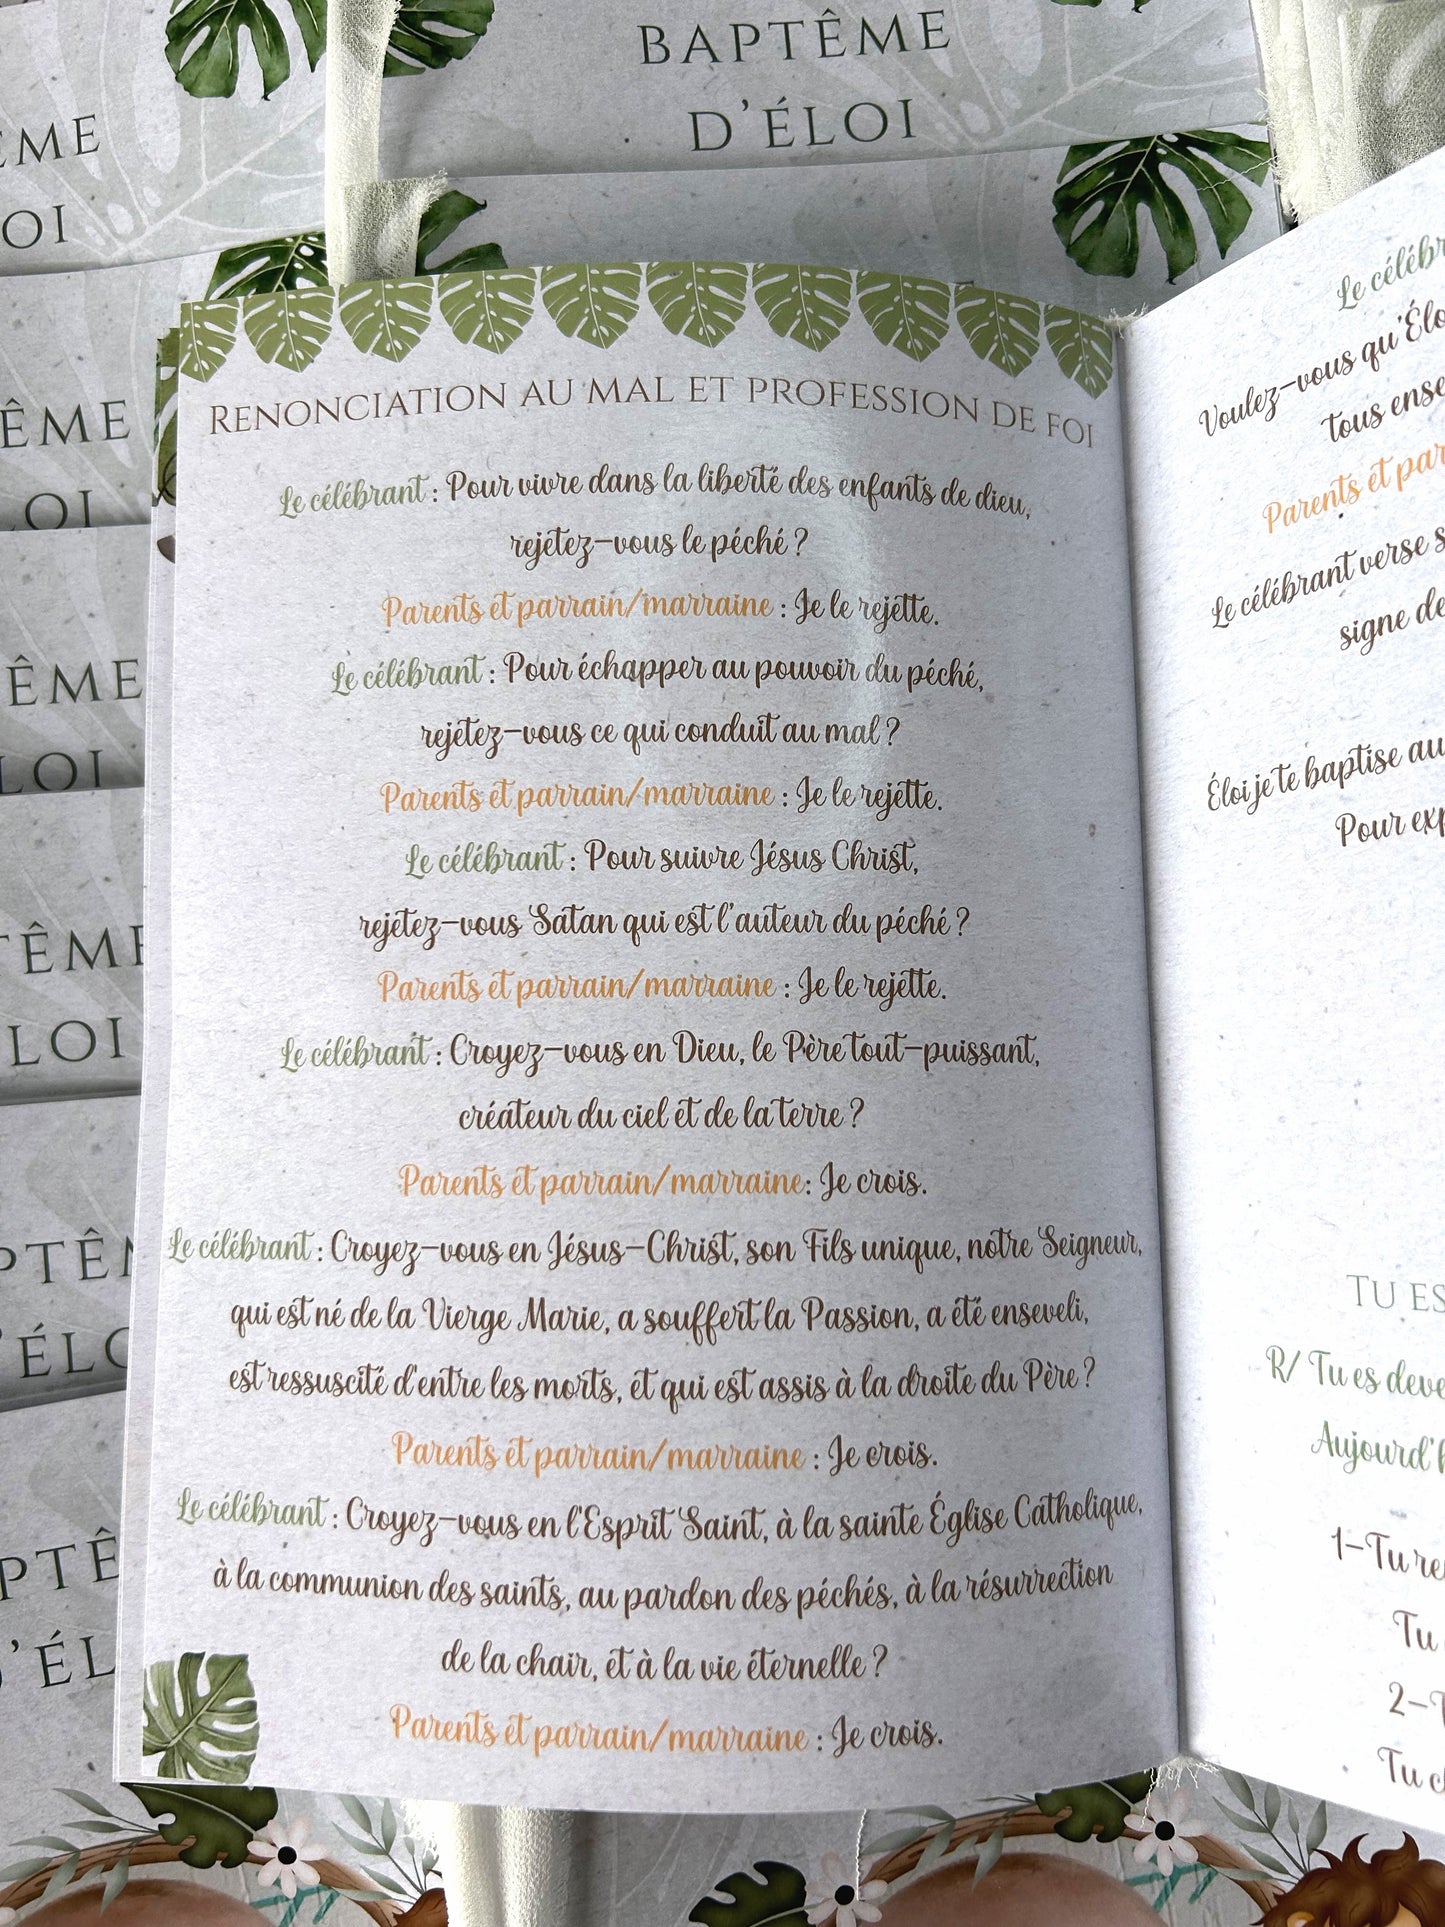 BAPTÊME
D'ÉLOI
RENONCIATION AU MAL ET PROFESSION DE FOI
Le célébrant : Pour vivre dans la liberté des enfants de dieu,
rejetez-vous le péché ?
Parents et parrain/marraine : Je le rejette.
Le célébrant : Pour échapper au pouvoir du péché,
rejetez-vous ce qui conduit au mal ?
Parents et parrain/marraine : Je le rejette.
Le célébrant : Pour suivre Jésus Christ,
rejetez-vous Satan qui est l'auteur du péché ?
Parents et parrain/marraine : Je le rejette.
Le célébrant : Croyez-vous en Dieu, le Père tout-puissant,
créateur du ciel et de la terre ?
Parents et parrain/marraine: Je crois.
Le célébrant : Croyez-vous en Jésus-Christ, son Fils unique, notre Seigneur,
qui est né de la Vierge Marie, a souffert la Passion, a été enseveli,
est ressuscité d'entre les morts, et qui est assis à la droite du Père ?
Parents et parrain/marraine : Je crois.
Le célébrant : Croyez-vous en l'Esprit Saint, à la sainte Église Catholique,
à la communion des saints, au pardon des péchés, à la résurrection
de la chair, et à la vie éternelle ?
Parents et parrain/marraine : Je crois.
Le célébr
Voulez-vous qu'Élo
tous ense
Parents et par
Le célébrant verse s
signe de
Éloi je te baptise au
Pour exp
TU ES
R/ Tu es deve
Aujourd'h
1-Tu re
Tu
2-T
Tu c
ÊME
LOI
ÊME
LOI
ÊME
LOI
TÊME
LOI
PTÊM
'ÉLO
PTÊ
D'ÉL